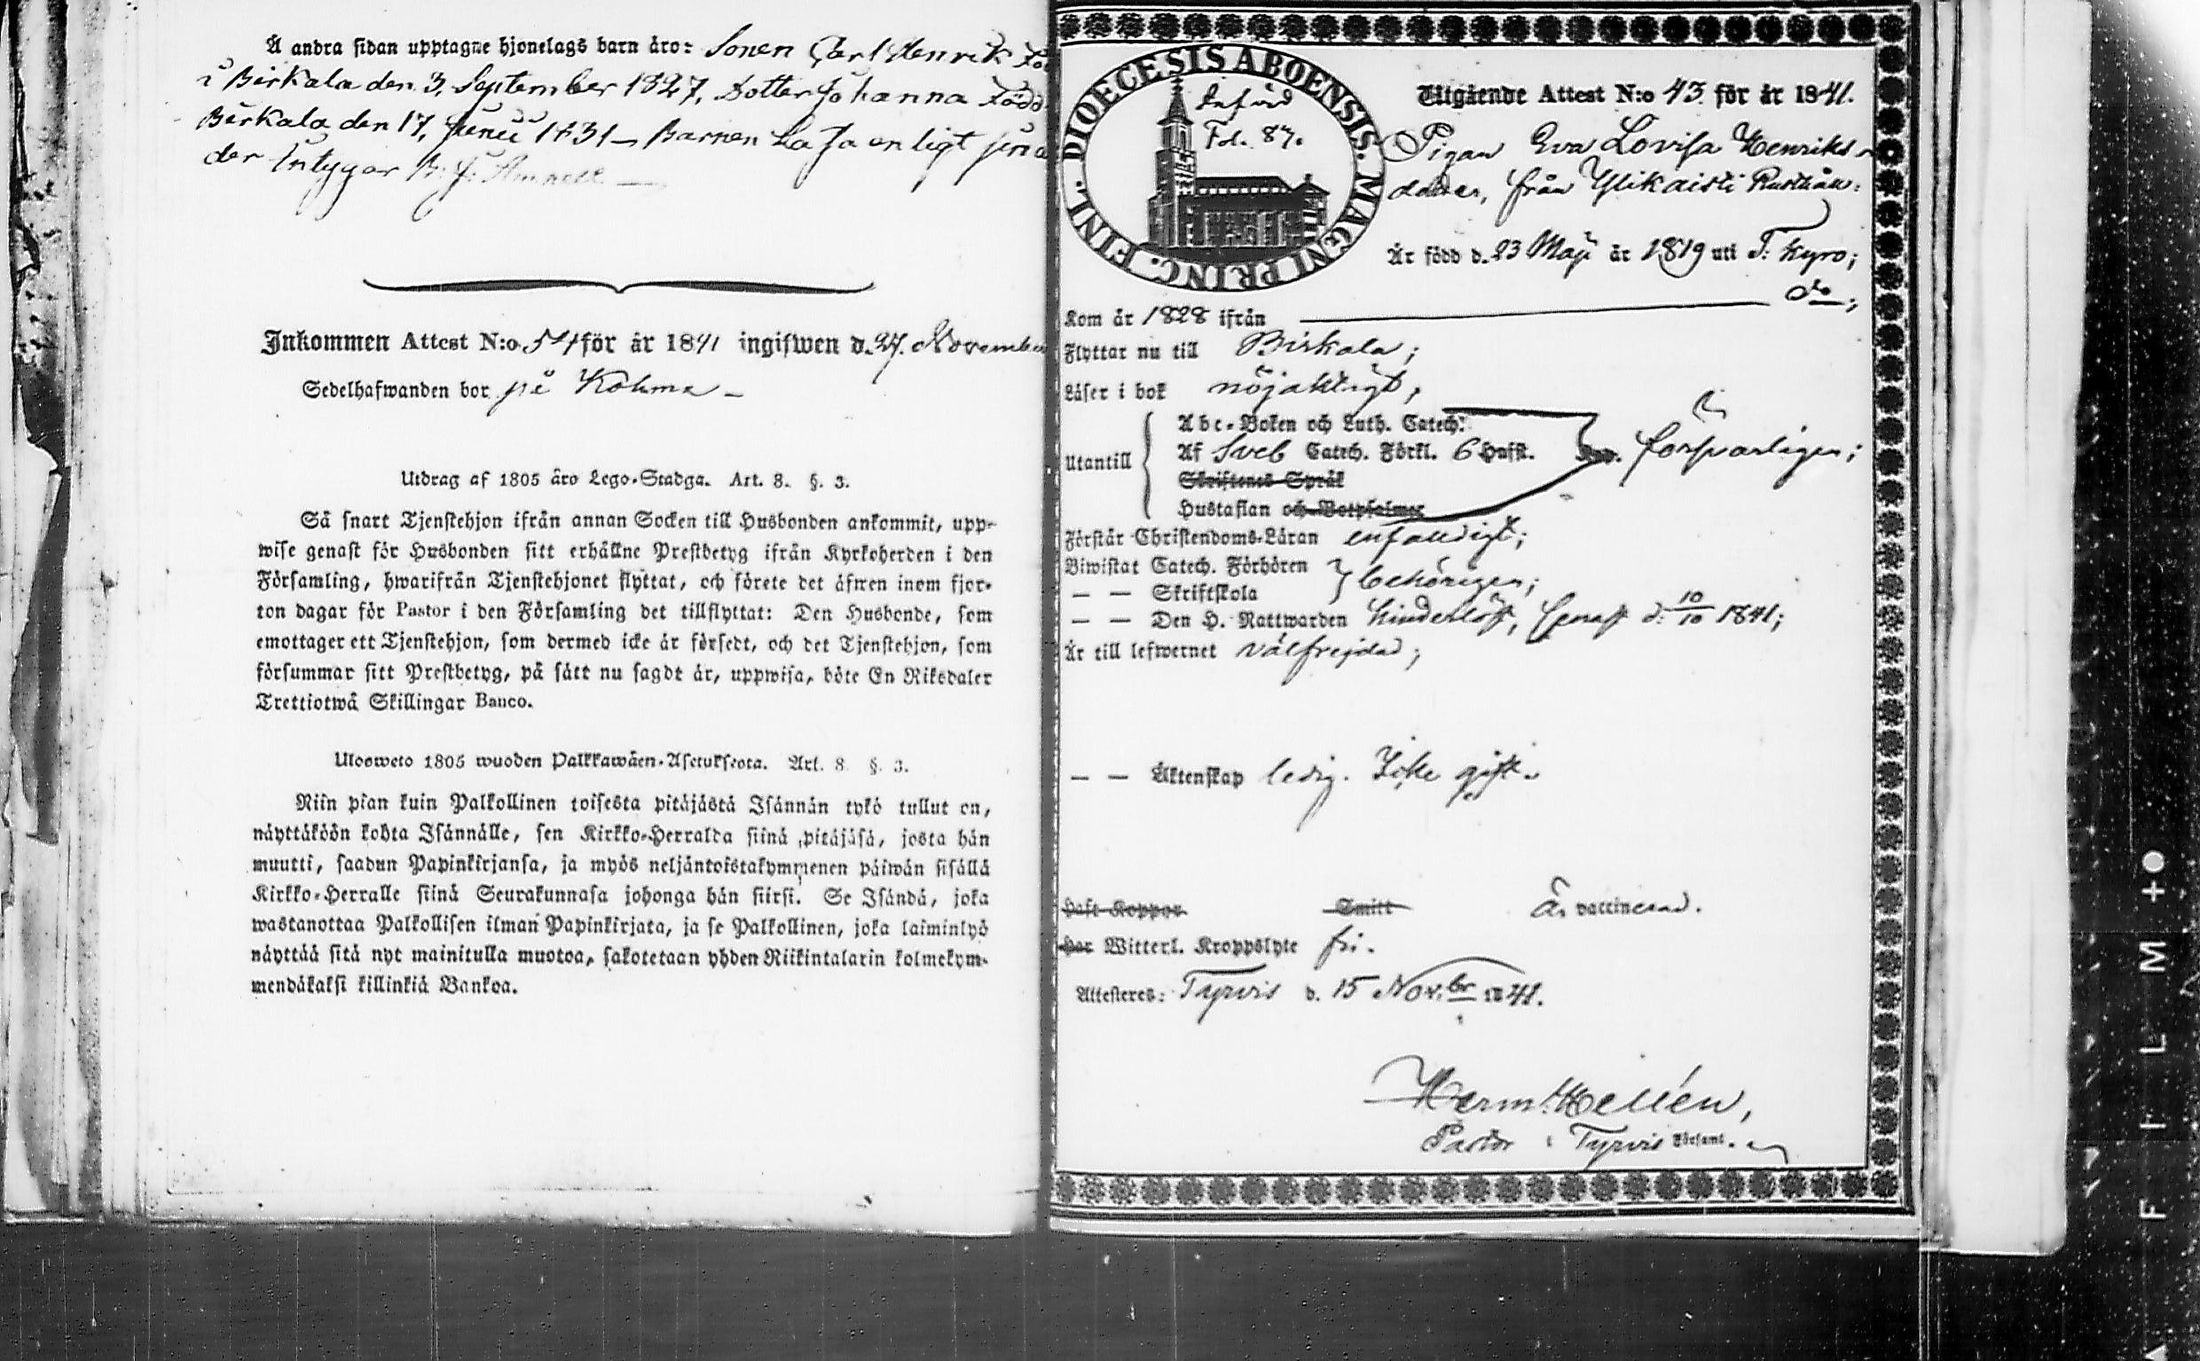 Å andra sidan upptagne hjonelags barn äro: Sonen Carl Henrik
i Birkala den 3. September 1827, Dotter Johanna född
Birkala den 17, Junii 1831 – Barnen
der Intygar
Inkommen Attest N:o 54 för år 1841 ingifwen d. 27. November
Sedelhafwanden bor på Kohma –
Utdrag af 1805 års Lego-Stadga. Art. 8. §. 3.
Så snart Tjenstehjon ifrån annan Socken till Husbonden ankommit, upp-
wise genast för Husbonden sitt erhållne Prestbetyg ifrån Kyrkoherden i den
Församling, hwarifrån Tjenstehjonet flyttat, och förete det äfwen inom fjor-
ton dagar för Pastor i den Församling det tillflyttat: Den Husbonde, som
emottager ett Tjenstehjon, som dermed icke är försedt, och det Tjenstehjon, som
försummar sitt Prestbetyg, på sätt nu sagdt är, uppwisa, böte En Riksdaler
Trettiotwå Skillingar Banco.
Ulosweto 1805 wuoden Palkkawäen-Asetuksesta. Art. 8 §. 3.
Niin pian kuin Palkollinen toisesta pitäjästä Isännän tykö tullut on,
näyttäköön kohta Isännälle, sen Kirkko-Herralda siinä pitäjäsä, josta hän
muutti, saadun Papinkirjansa, ja myös neljäntoistakymmenen päiwän sisällä
Kirkko-Herralle siinä Seurakunnasa johonga hän siirsi. Se Isändä, joka
wastanottaa Palkollisen ilman Papinkirjata, ja se Palkollinen, joka laiminlyö
näyttää sitä nyt mainitulla muotoa, sakotetaan yhden Riikintalarin kolmekym-
mendäkaksi killinkiä Bankoa.
DIOECESIS ABOENSIS. MAGNI PRINC. FINL.
Införd
Fol. 87.
Utgående Attest N:o 43. för år 1841.
Pigan Eva Lovisa Henriks
dotter, från Ylikaisti Rusthåll:
Är född d. 23 Maji år 1819 uti T. Kyro;
Kom år 1828 ifrån do;
Flyttar nu till Birkala;
Läser i bok nöjaktigt,
Utantill
Abc-Boken och Luth. Catech.
Af Sveb Catech. Förkl. 6 Hufst. försvarligen;
Skriftenes Språk
Hustaflan och Botpsalmer
Förstår Christendoms-Läran enfaldigt;
Biwistat Catech. Förhören
— — Skriftskola behörigen;
— — Den H. Nattwarden hinderlöst, senast d: 10/10 1841;
Är till lefwernet välfrejdad;
— — Äktenskap ledig. Icke gift.
Haft Koppor Smitt Är vaccinerad.
Har Witterl. Kroppslyte fri.
Attesteres: Tyrvis d. 15 Nov.br 1841.
Herm. Hellén,
Pastor i Tyrvis Församl.
F I L M